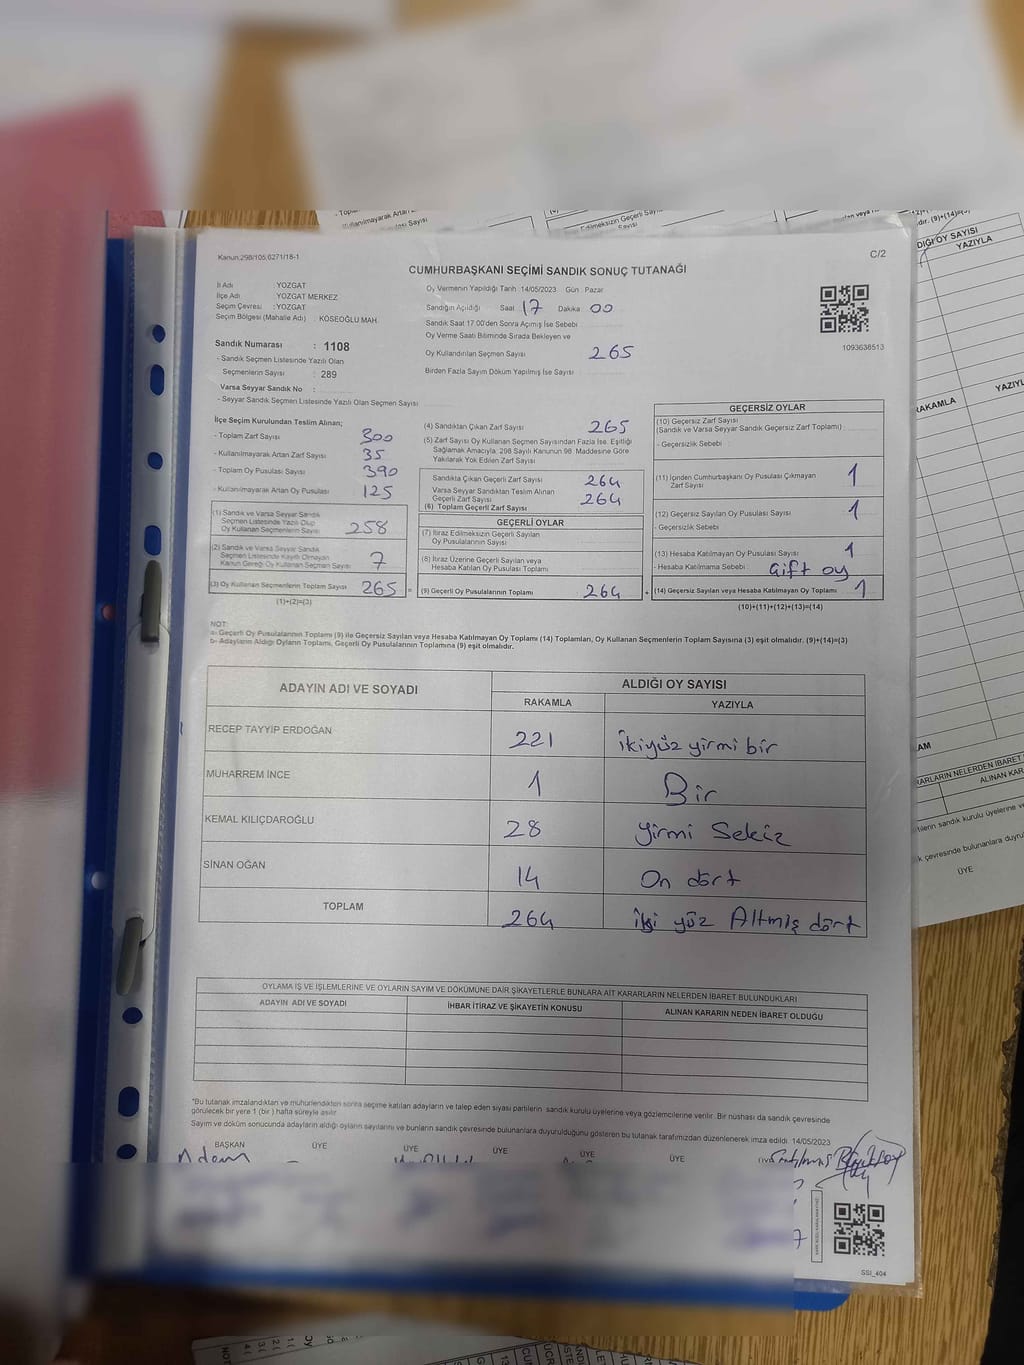 Kanun;298/105;6271/18-1
C/2
CUMHURBAŞKANI SEÇİMİ SANDIK SONUÇ TUTANAĞI
İl Adı : YOZGAT
İlçe Adı : YOZGAT MERKEZ
Seçim Çevresi : YOZGAT
Seçim Bölgesi (Mahalle Adı) : KÖSEOĞLU MAH.
Sandık Numarası : 1108
- Sandık Seçmen Listesinde Yazılı Olan
Seçmenlerin Sayısı : 289
Varsa Seyyar Sandık No :
- Seyyar Sandık Seçmen Listesinde Yazılı Olan Seçmen Sayısı
Oy Vermenin Yapıldığı Tarih :14/05/2023 Gün : Pazar
Sandığın Açıldığı Saat 17 Dakika 00
Sandık Saat 17:00'den Sonra Açılmış İse Sebebi
Oy Verme Saati Bitiminde Sırada Bekleyen ve
Oy Kullandırılan Seçmen Sayısı 265
Birden Fazla Sayım Döküm Yapılmış İse Sayısı
1093638513
İlçe Seçim Kurulundan Teslim Alınan;
- Toplam Zarf Sayısı 300
- Kullanılmayarak Artan Zarf Sayısı 35
- Toplam Oy Pusulası Sayısı 390
- Kullanılmayarak Artan Oy Pusulası 125
(1) Sandık ve Varsa Seyyar Sandık
Seçmen Listesinde Yazılı Olup
Oy Kullanan Seçmenlerin Sayısı 258
(2) Sandık ve Varsa Seyyar Sandık
Seçmen Listesinde Kayıtlı Olmayan
Kanun Gereği Oy Kullanan Seçmen Sayısı 7
(3) Oy Kullanan Seçmenlerin Toplam Sayısı 265 =
(1)+(2)=(3)
(4) Sandıktan Çıkan Zarf Sayısı 265
(5) Zarf Sayısı Oy Kullanan Seçmen Sayısından Fazla İse, Eşitliği
Sağlamak Amacıyla, 298 Sayılı Kanunun 98. Maddesine Göre
Yakılarak Yok Edilen Zarf Sayısı
Sandıkta Çıkan Geçerli Zarf Sayısı 264
Varsa Seyyar Sandıktan Teslim Alınan
Geçerli Zarf Sayısı 264
(6) Toplam Geçerli Zarf Sayısı
GEÇERLİ OYLAR
(7) İtiraz Edilmeksizin Geçerli Sayılan
Oy Pusulalarının Sayısı
(8) İtiraz Üzerine Geçerli Sayılan veya
Hesaba Katılan Oy Pusulası Toplamı
(9) Geçerli Oy Pusulalarının Toplamı 264 +
GEÇERSİZ OYLAR
(10) Geçersiz Zarf Sayısı
(Sandık ve Varsa Seyyar Sandık Geçersiz Zarf Toplamı)
- Geçersizlik Sebebi :
(11) İçinden Cumhurbaşkanı Oy Pusulası Çıkmayan
Zarf Sayısı 1
(12) Geçersiz Sayılan Oy Pusulası Sayısı 1
- Geçersizlik Sebebi
(13) Hesaba Katılmayan Oy Pusulası Sayısı 1
- Hesaba Katılmama Sebebi : Çift oy
(14) Geçersiz Sayılan veya Hesaba Katılmayan Oy Toplamı 1
(10)+(11)+(12)+(13)=(14)
NOT:
a- Geçerli Oy Pusulalarının Toplamı (9) ile Geçersiz Sayılan veya Hesaba Katılmayan Oy Toplamı (14) Toplamları, Oy Kullanan Seçmenlerin Toplam Sayısına (3) eşit olmalıdır. (9)+(14)=(3)
b- Adayların Aldığı Oyların Toplamı, Geçerli Oy Pusulalarının Toplamına (9) eşit olmalıdır.
ADAYIN ADI VE SOYADI
ALDIĞI OY SAYISI
RAKAMLA YAZIYLA
RECEP TAYYİP ERDOĞAN 221 ikiyüz yirmi bir
MUHARREM İNCE 1 Bir
KEMAL KILIÇDAROĞLU 28 yirmi Sekiz
SİNAN OĞAN 14 On dört
TOPLAM 264 iki yüz Altmış dört
OYLAMA İŞ VE İŞLEMLERİNE VE OYLARIN SAYIM VE DÖKÜMÜNE DAİR ŞİKAYETLERLE BUNLARA AİT KARARLARIN NELERDEN İBARET BULUNDUKLARI
ADAYIN ADI VE SOYADI İHBAR İTİRAZ VE ŞİKAYETİN KONUSU ALINAN KARARIN NEDEN İBARET OLDUĞU
*Bu tutanak imzalandıktan ve mühürlendikten sonra seçime katılan adayların ve talep eden siyasi partilerin sandık kurulu üyelerine veya gözlemcilerine verilir. Bir nüshası da sandık çevresinde
görülecek bir yere 1 (bir ) hafta süreyle asılır.
Sayım ve döküm sonucunda adayların aldığı oyların sayılarını ve bunların sandık çevresinde bulunanlara duyurulduğunu gösteren bu tutanak tarafımızdan düzenlenerek imza edildi. 14/05/2023
BAŞKAN ÜYE ÜYE ÜYE ÜYE ÜYE
Adem
SSI_404
ALDIĞI OY SAYISI
YAZIYLA
RAKAMLA
ÜYE